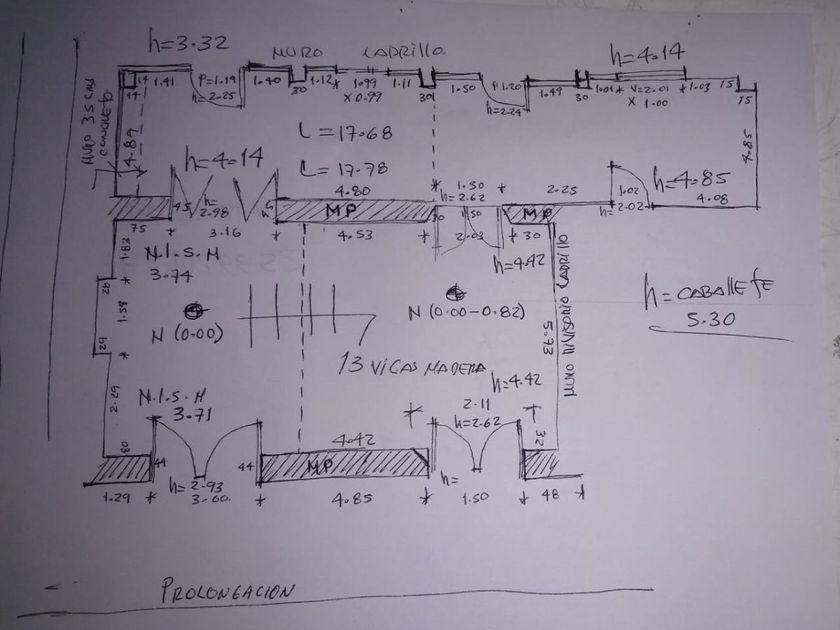 h=3.32
MURO LADRILLO.
h=4.14
14
14
1.41
P=1.19
h=2.25
1.40
30
1.12
1.99
X 0.99
1.11
30
1.50
P 1.20
h=2.24
1.49
30
1.01
V=2.01
X
1.00
1.03
15
15
MURO 35 cms
4.89
L=17.68
L=17.78
4.85
h=4.14
45
h=
2.98
3.16
4.80
MP
4.53
1.50
h=2.62
1.50
2.03
2.25
MP
30
1.02
h=2.02
h=4.85
4.08
75
1.83
N.I.S.M
3.74
h=4.42
1.58
N (0.00)
N (0.00-0.82)
h=CABALLETE
5.30
5.73
MURO DIVISORIO LADRILLO
13 VIGAS MADERA
2.29
N.I.S.M
3.71
h=4.42
2.11
h=2.62
80
44
44
4.42
MP
32
h=2.93
3.00.
h=
1.29
4.85
1.50
48
PROLONGACION